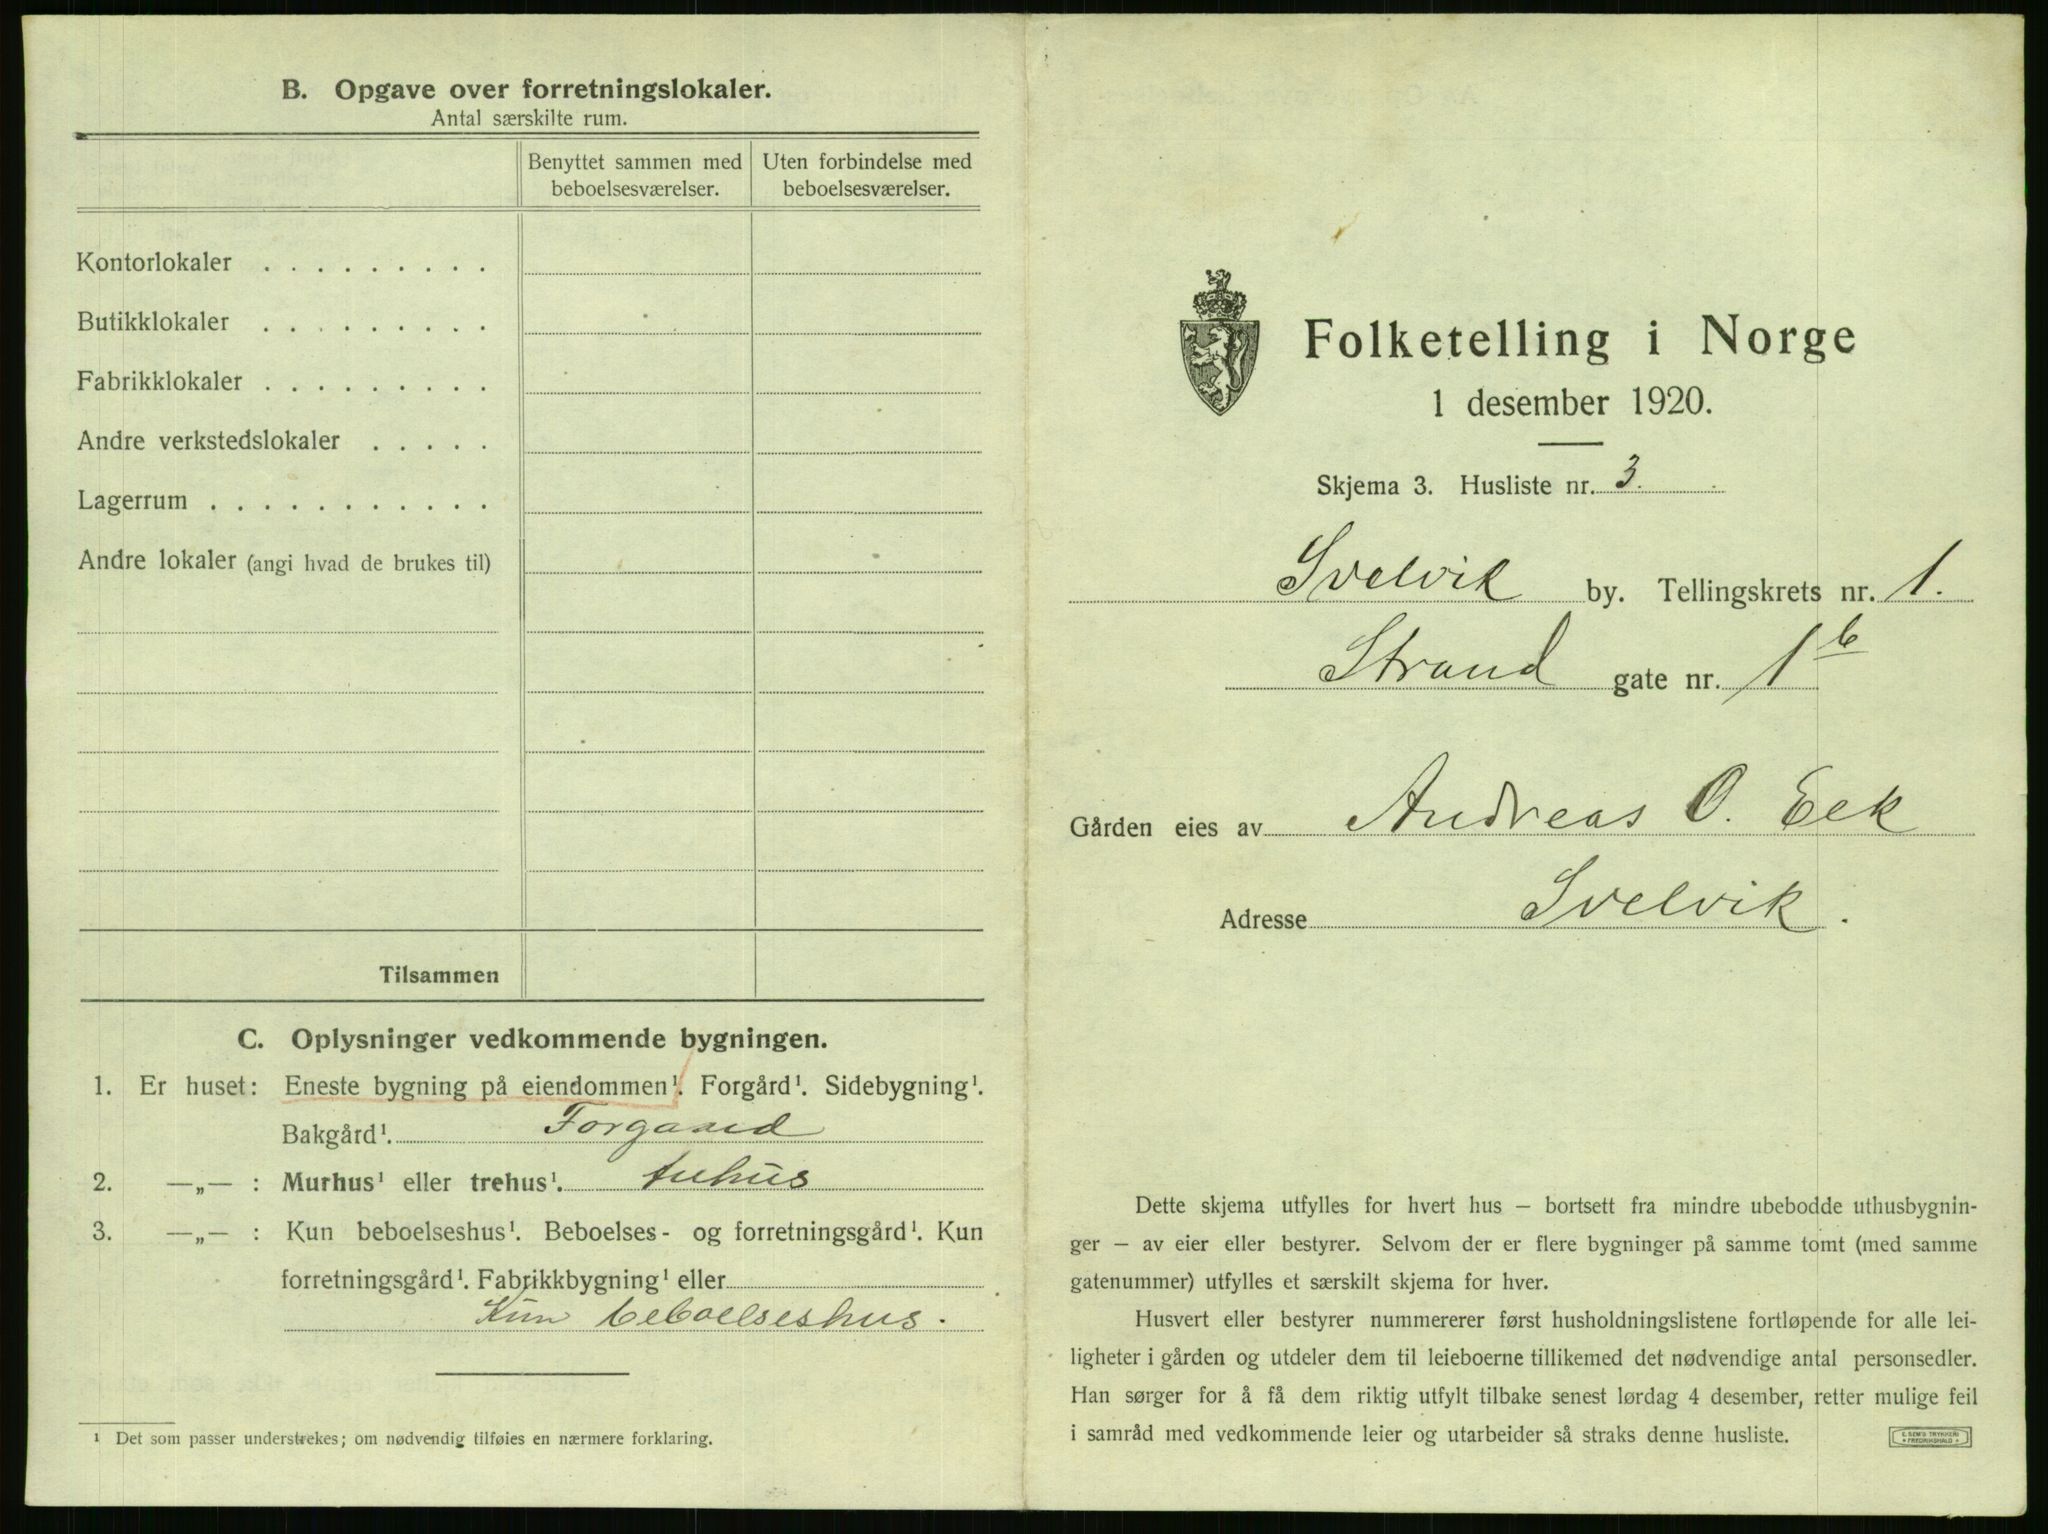 B. Opgave over forretningslokaler.
Antal særskilte rum.
Benyttet sammen med beboelsesværelser.
Uten forbindelse med beboelsesværelser.
Kontorlokaler . . . . . . . . .
Butikklokaler . . . . . . . . .
Fabrikklokaler . . . . . . . . .
Andre verkstedslokaler . . . . .
Lagerrum . . . . . . . . . . .
Andre lokaler (angi hvad de brukes til)
Tilsammen
C. Oplysninger vedkommende bygningen.
1. Er huset: Eneste bygning på eiendommen¹. Forgård¹. Sidebygning¹.
Bakgård¹. Forgaard
2. —„— : Murhus¹ eller trehus¹. trehus
3. —„— : Kun beboelseshus¹. Beboelses- og forretningsgård¹. Kun
forretningsgård¹. Fabrikkbygning¹ eller
Kun beboelseshus.
¹ Det som passer understrekes; om nødvendig tilføies en nærmere forklaring.
Folketelling i Norge
1 desember 1920.
Skjema 3. Husliste nr. 3.
Svelvik by. Tellingskrets nr. 1.
Strand gate nr. 1b
Gården eies av Andreas O. Eek
Adresse Svelvik.
Dette skjema utfylles for hvert hus – bortsett fra mindre ubebodde uthusbygnin-
ger – av eier eller bestyrer. Selvom der er flere bygninger på samme tomt (med samme
gatenummer) utfylles et særskilt skjema for hver.
Husvert eller bestyrer nummererer først husholdningslistene fortløpende for alle lei-
ligheter i gården og utdeler dem til leieboerne tillikemed det nødvendige antal personsedler.
Han sørger for å få dem riktig utfylt tilbake senest lørdag 4 desember, retter mulige feil
i samråd med vedkommende leier og utarbeider så straks denne husliste.
E. SEM'S TRYKKERI
FREDRIKSHALD